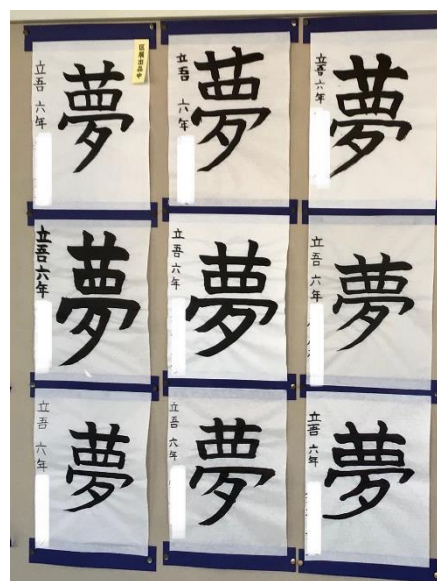 夢
立吾 六年
区展出品中
夢
立吾 六年
夢
立吾 六年
夢
立吾 六年
夢
立吾 六年
夢
立吾 六年
夢
立吾 六年
夢
立吾 六年
夢
立吾 六年